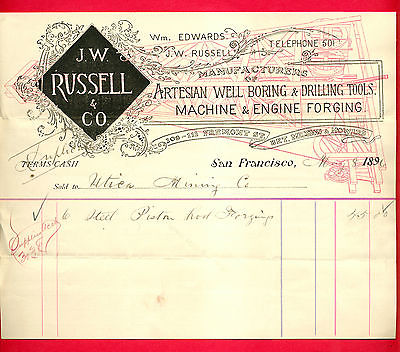 Wm. EDWARDS.
J. W. RUSSELL
TELEPHONE 501
J. W.
RUSSELL
&
CO
MANUFACTURERS
OF
ARTESIAN WELL BORING & DRILLING TOOLS.
MACHINE & ENGINE FORGING.
FREMONT ST.
BET. & HOWARD
TERMS CASH
San Francisco, 189
Sold to Utica Mining Co
6 Steel Piston Rod Forgings